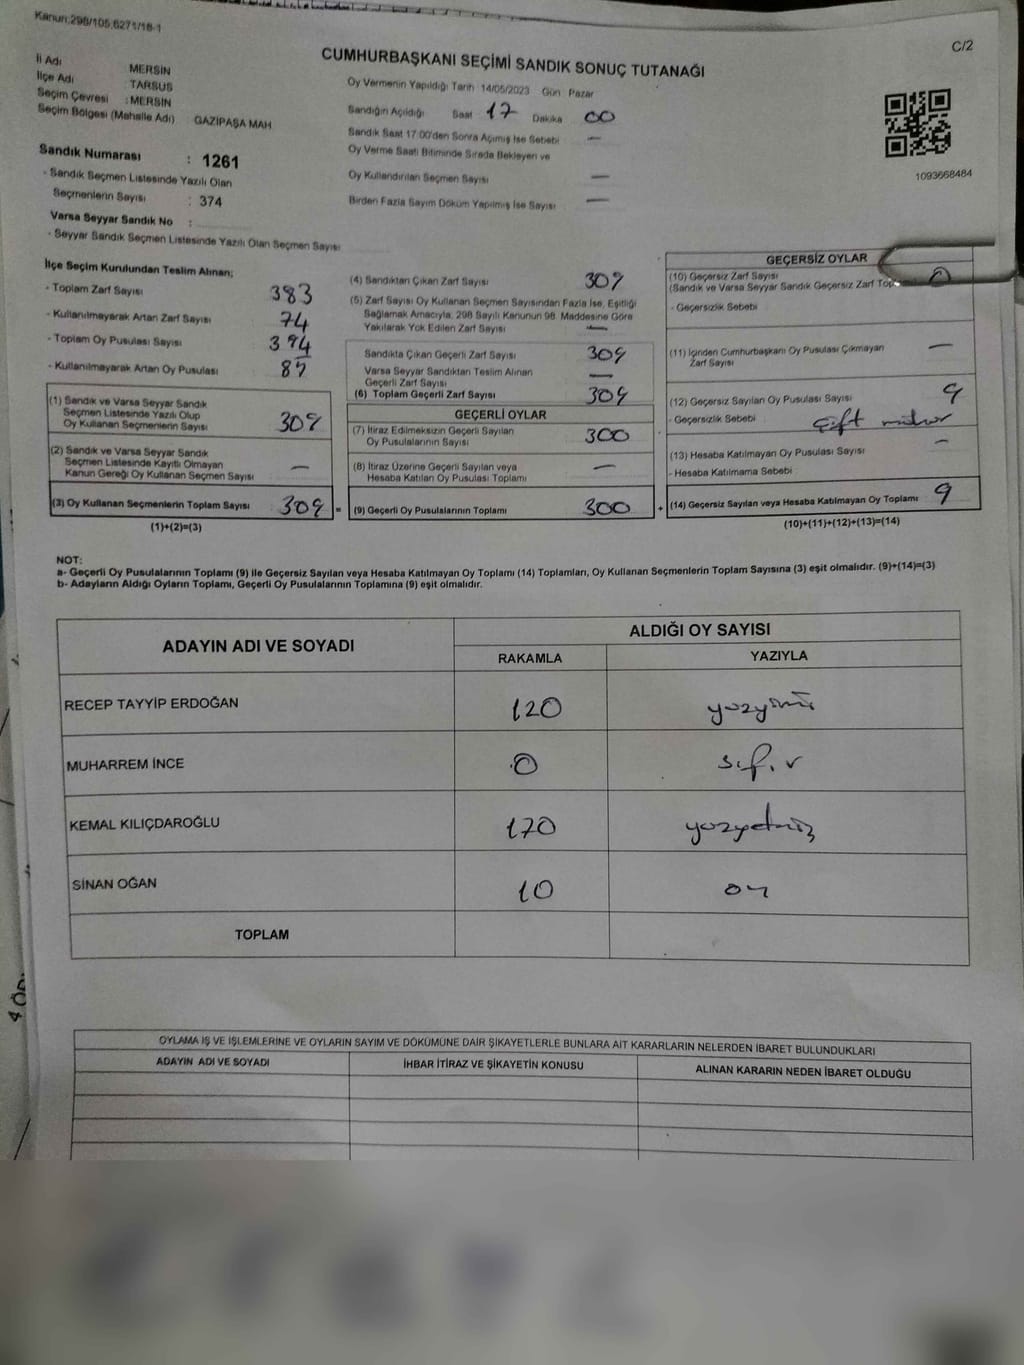 Kanun:298/105,6271/18-1
C/2
CUMHURBAŞKANI SEÇİMİ SANDIK SONUÇ TUTANAĞI
İl Adı MERSİN
İlçe Adı TARSUS
Seçim Çevresi : MERSİN
Seçim Bölgesi (Mahalle Adı) GAZİPAŞA MAH
Oy Vermenin Yapıldığı Tarih 14/05/2023 Gün Pazar
Sandığın Açıldığı Saat 17 Dakika 00
Sandık Saat 17:00'den Sonra Açımış İse Sebebi —
Oy Verme Saati Bitiminde Sırada Bekleyen ve
Oy Kullandırılan Seçmen Sayısı —
Birden Fazla Sayım Döküm Yapılmış İse Sayısı —
1093668484
Sandık Numarası : 1261
- Sandık Seçmen Listesinde Yazılı Olan
Seçmenlerin Sayısı : 374
Varsa Seyyar Sandık No :
- Seyyar Sandık Seçmen Listesinde Yazılı Olan Seçmen Sayısı
İlçe Seçim Kurulundan Teslim Alınan;
- Toplam Zarf Sayısı 383
- Kullanılmayarak Artan Zarf Sayısı 74
- Toplam Oy Pusulası Sayısı 394
- Kullanılmayarak Artan Oy Pusulası 85
(1) Sandık ve Varsa Seyyar Sandık
Seçmen Listesinde Yazılı Olup
Oy Kullanan Seçmenlerin Sayısı 309
(2) Sandık ve Varsa Seyyar Sandık
Seçmen Listesinde Kayıtlı Olmayan
Kanun Gereği Oy Kullanan Seçmen Sayısı —
(3) Oy Kullanan Seçmenlerin Toplam Sayısı 309 =
(1)+(2)=(3)
(4) Sandıktan Çıkan Zarf Sayısı 309
(5) Zarf Sayısı Oy Kullanan Seçmen Sayısından Fazla İse, Eşitliği
Sağlamak Amacıyla, 298 Sayılı Kanunun 98. Maddesine Göre
Yakılarak Yok Edilen Zarf Sayısı —
Sandıkta Çıkan Geçerli Zarf Sayısı 309
Varsa Seyyar Sandıktan Teslim Alınan
Geçerli Zarf Sayısı —
(6) Toplam Geçerli Zarf Sayısı 309
GEÇERLİ OYLAR
(7) İtiraz Edilmeksizin Geçerli Sayılan
Oy Pusulalarının Sayısı 300
(8) İtiraz Üzerine Geçerli Sayılan veya
Hesaba Katılan Oy Pusulası Toplamı —
(9) Geçerli Oy Pusulalarının Toplamı 300 +
GEÇERSİZ OYLAR
(10) Geçersiz Zarf Sayısı 0
(Sandık ve Varsa Seyyar Sandık Geçersiz Zarf
- Geçersizlik Sebebi
(11) İçinden Cumhurbaşkanı Oy Pusulası Çıkmayan
Zarf Sayısı —
(12) Geçersiz Sayılan Oy Pusulası Sayısı 9
- Geçersizlik Sebebi Çift mühür
(13) Hesaba Katılmayan Oy Pusulası Sayısı —
- Hesaba Katılmama Sebebi
(14) Geçersiz Sayılan veya Hesaba Katılmayan Oy Toplamı 9
(10)+(11)+(12)+(13)=(14)
NOT:
a- Geçerli Oy Pusulalarının Toplamı (9) ile Geçersiz Sayılan veya Hesaba Katılmayan Oy Toplamı (14) Toplamları, Oy Kullanan Seçmenlerin Toplam Sayısına (3) eşit olmalıdır. (9)+(14)=(3)
b- Adayların Aldığı Oyların Toplamı, Geçerli Oy Pusulalarının Toplamına (9) eşit olmalıdır.
ADAYIN ADI VE SOYADI
ALDIĞI OY SAYISI
RAKAMLA YAZIYLA
RECEP TAYYİP ERDOĞAN 120 yüzyirmi
MUHARREM İNCE 0 sıfır
KEMAL KILIÇDAROĞLU 170 yüzyetmiş
SİNAN OĞAN 10 on
TOPLAM
OYLAMA İŞ VE İŞLEMLERİNE VE OYLARIN SAYIM VE DÖKÜMÜNE DAİR ŞİKAYETLERLE BUNLARA AİT KARARLARIN NELERDEN İBARET BULUNDUKLARI
ADAYIN ADI VE SOYADI İHBAR İTİRAZ VE ŞİKAYETİN KONUSU ALINAN KARARIN NEDEN İBARET OLDUĞU